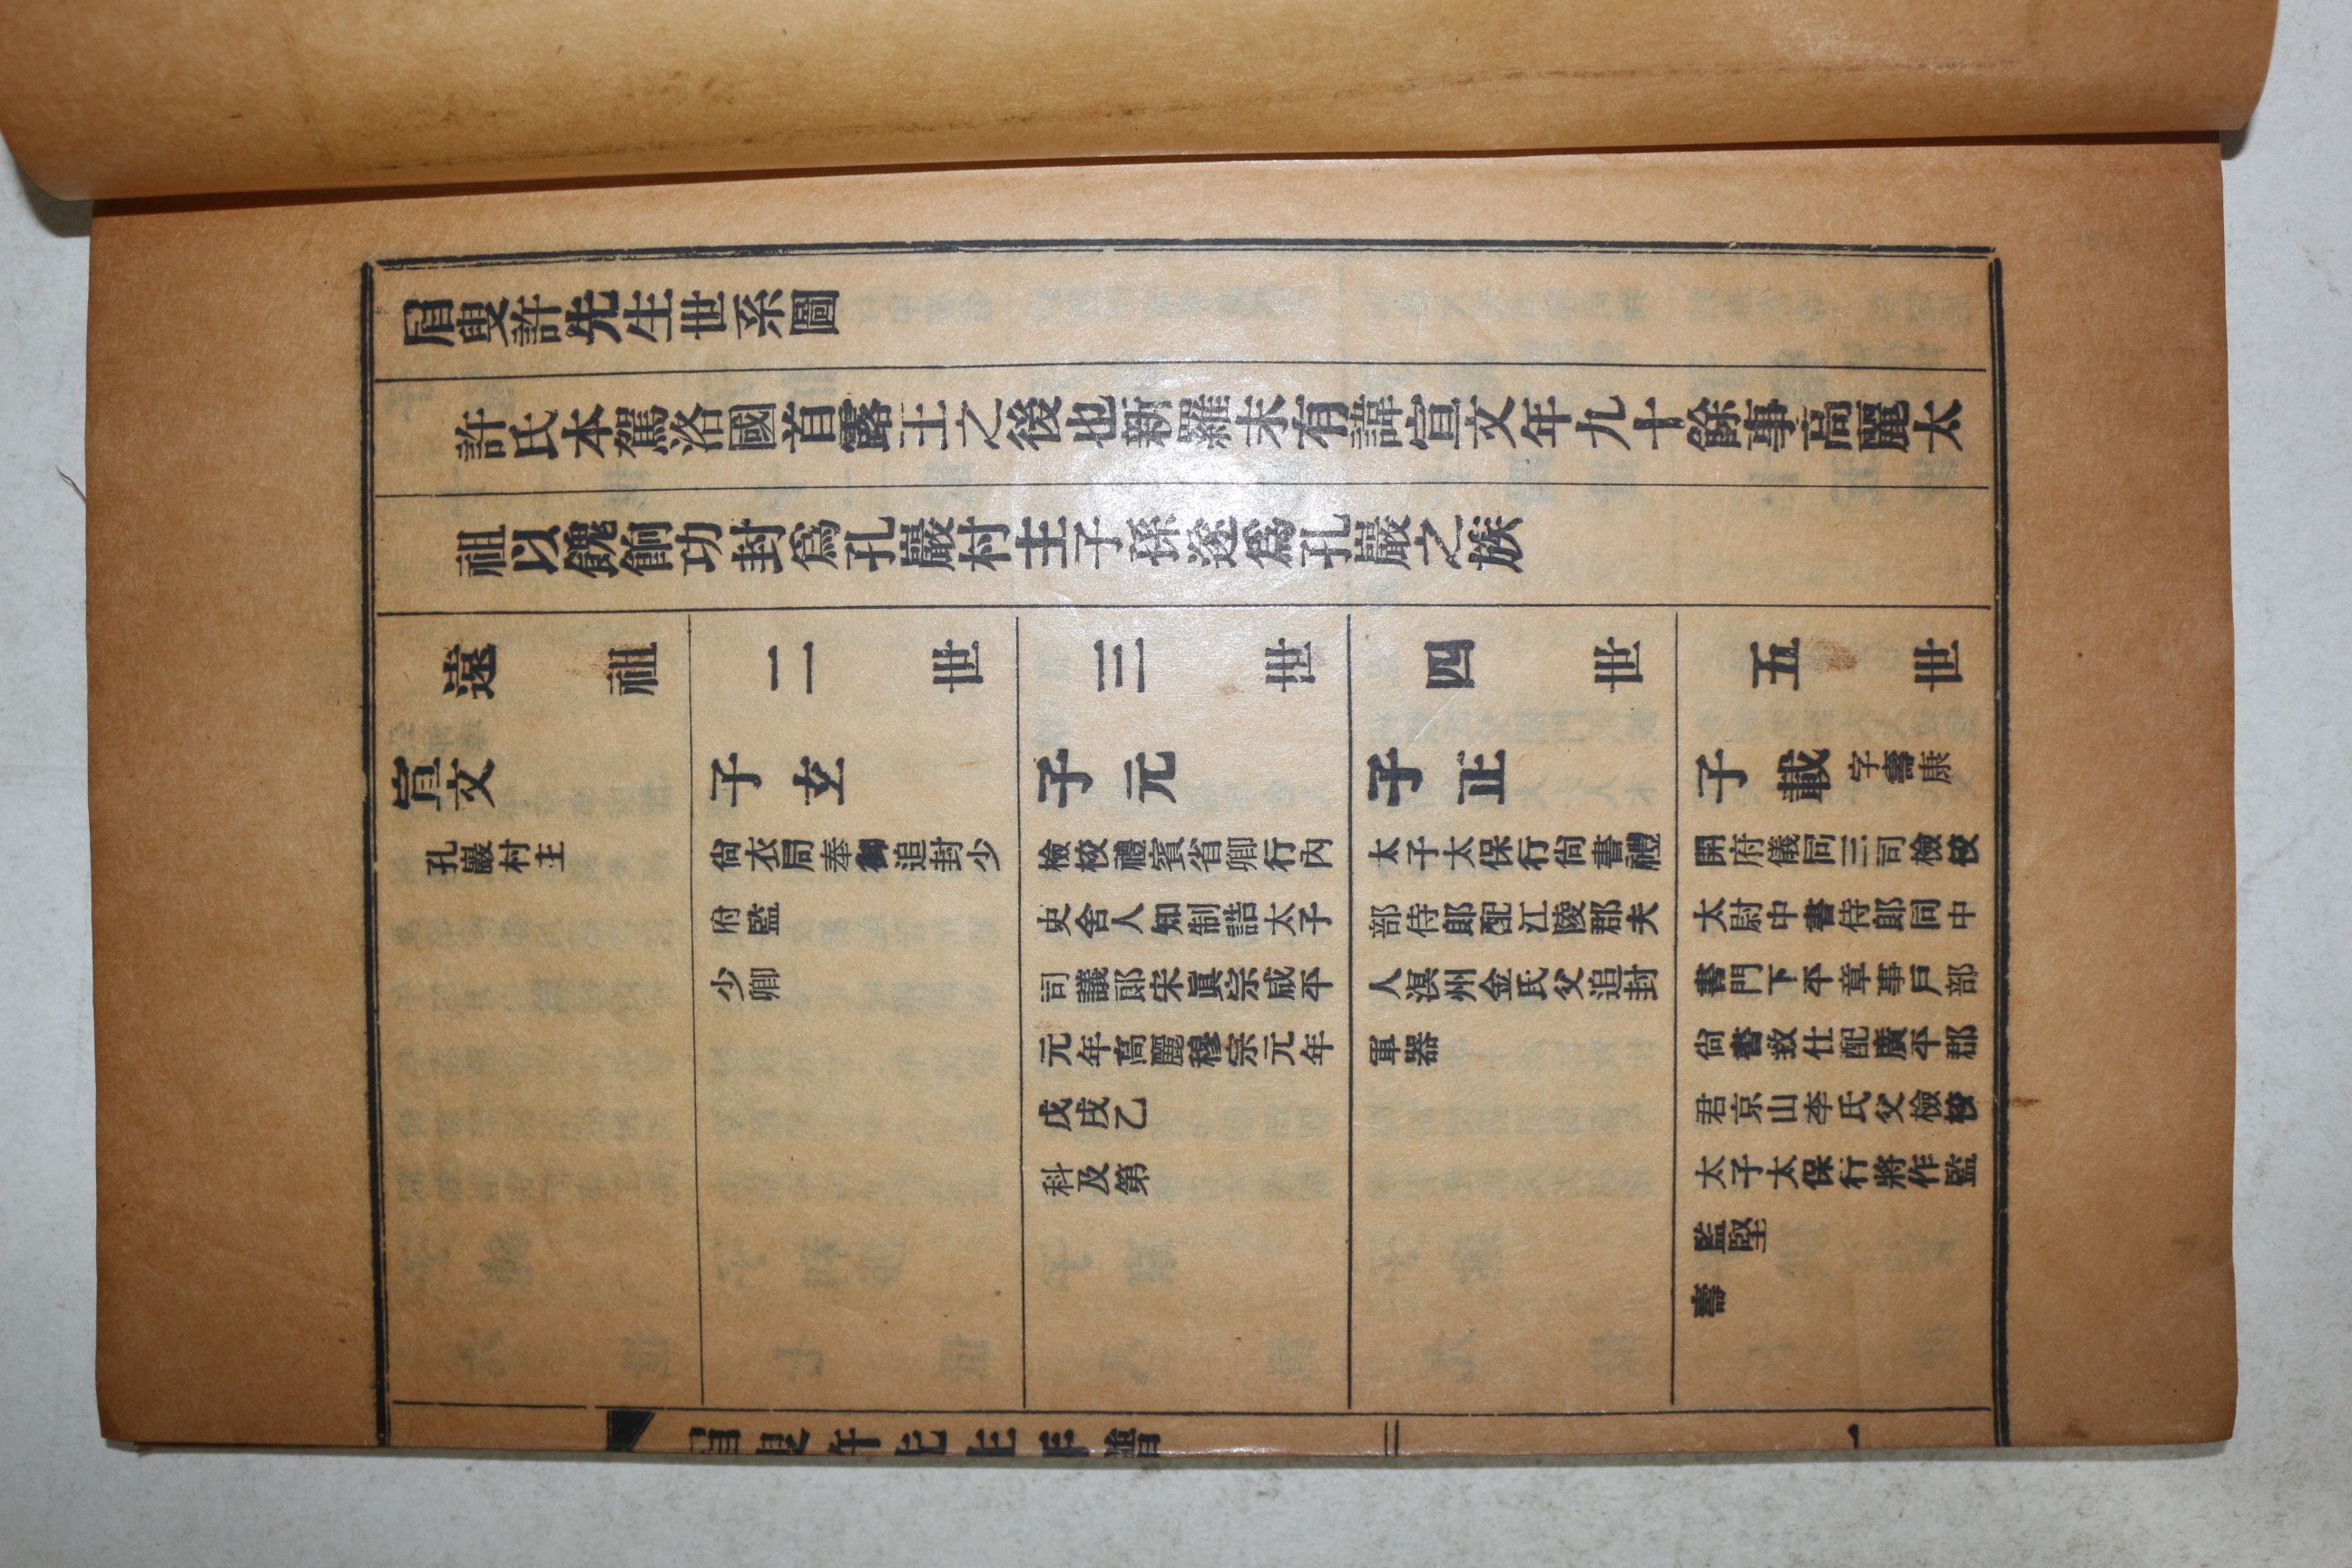 眉叟許先生世系圖
許氏本駕洛國首露王之後也新羅末有諱宣文年九十餘事高麗太
祖以餽餉功封爲孔巖村主子孫遂爲孔巖之族
遠祖
宣文
孔巖村主
二世
子玄
尙衣局奉御追封少
府監
少卿
三世
子元
檢校禮賓省卿行內
史舍人知制誥太子
司議郎宋眞宗咸平
元年高麗穆宗元年
戊戌乙
科及第
四世
子正
太子太保行尙書禮
部侍郎配江陵郡夫
人溟州金氏父追封
軍器
五世
子載字壽康
開府儀同三司檢校
太尉中書侍郎同中
書門下平章事戶部
尙書致仕配廣平郡
君京山李氏父檢校
太子太保行將作監
監堅
壽
眉叟許先生年譜
一